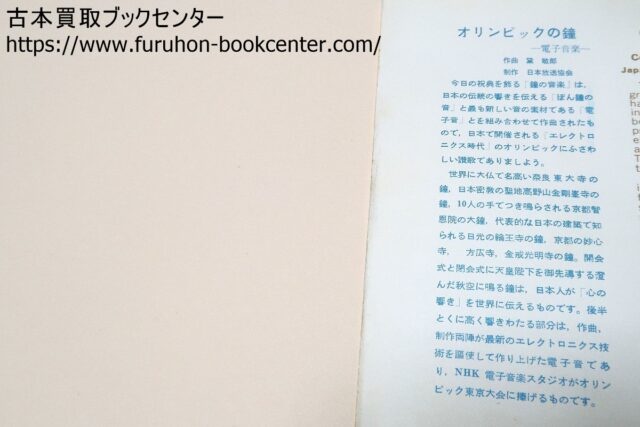 古本買取ブックセンター
https://www.furuhon-bookcenter.com/
オリンピックの鐘
—電子音楽—
作曲 黛 敏郎
制作 日本放送協会
今日の祝典を飾る「鐘の音楽」は、
日本の伝統の響きを伝える「ぼん鐘の
音」と最も新しい音の素材である「電
子音」とを組み合わせて作曲されたも
ので、日本で開催される「エレクトロ
ニクス時代」のオリンピックにふさわ
しい讃歌でありましよう。
世界に大仏で名高い奈良東大寺の
鐘、日本密教の聖地高野山金剛峯寺の
鐘、10人の手でつき鳴らされる京都智
恩院の大鐘、代表的な日本の建築で知
られる日光の輪王寺の鐘、京都の妙心
寺、 方広寺、金戒光明寺の鐘。開会
式と閉会式に天皇陛下を御先導する澄
んだ秋空に鳴る鐘は、日本人が「心の
響き」を世界に伝えるものです。後半
とくに高く響きわたる部分は、作曲、
制作両陣が最新のエレクトロニクス技
術を駆使して作り上げた電子音であ
り、NHK 電子音楽スタジオがオリン
ピック東京大会に捧げるものです。
Japa